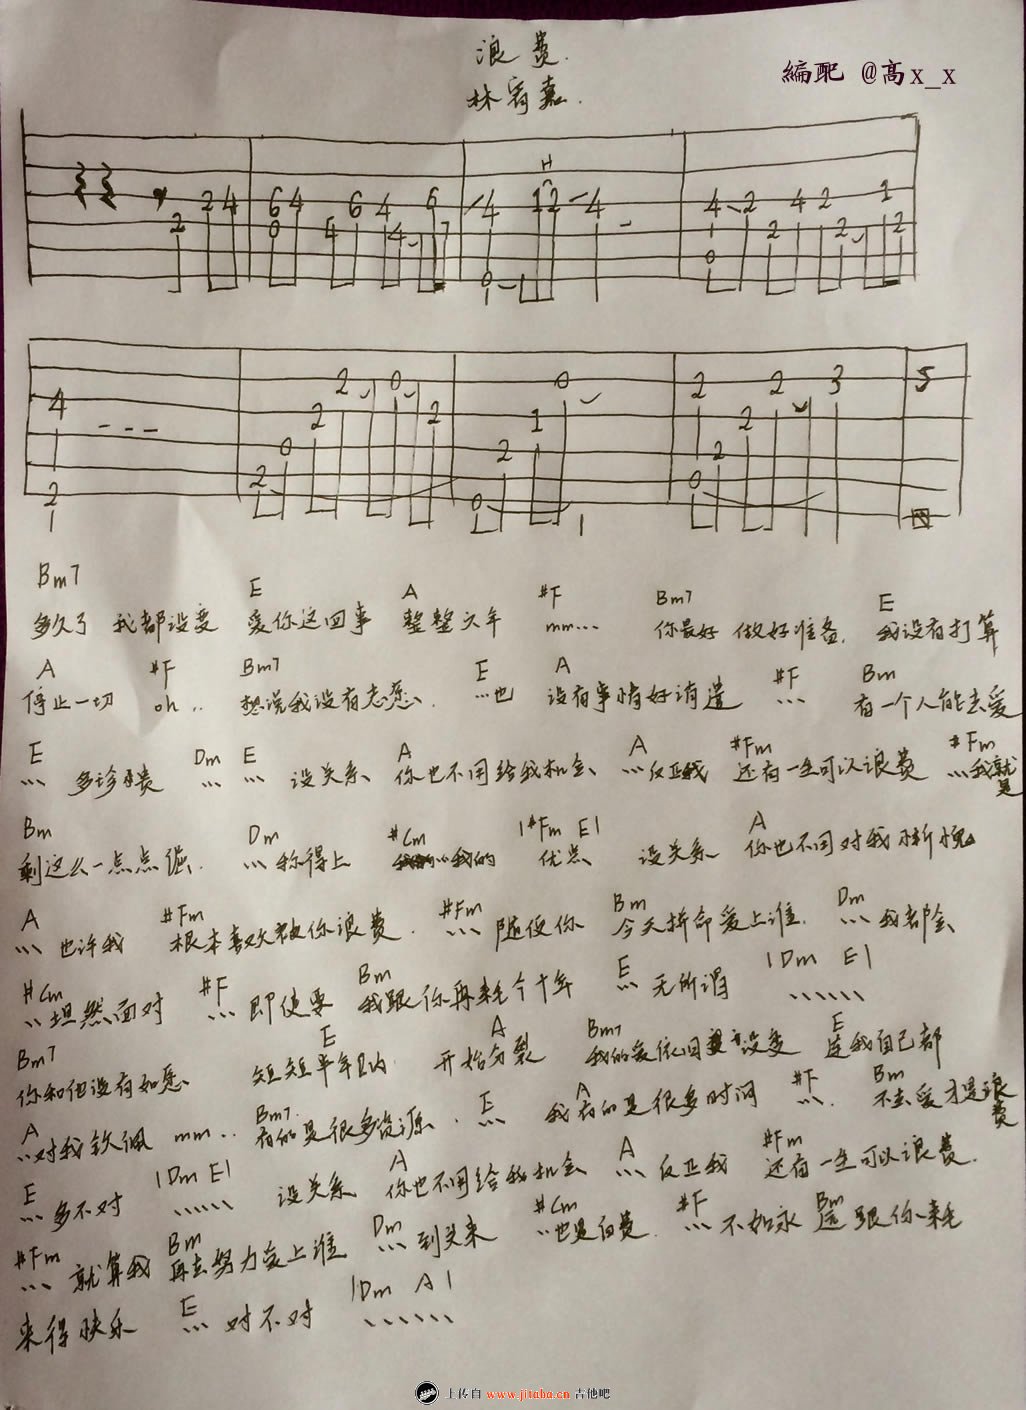 浪费.
林宥嘉.
编配 @高x_x
2 2 4 6 0 4 4 6 4 4 6 7 4 0 12 4 4 1 0 2 2 4 2 2 1 2
H
4 2 2 0 2 2 0 2 0 2 1 0 2 0 2 2 2 3 5
Bm7 E A #F Bm7 E
多久了 我都没变 爱你这回事 整整六年 mm... 你最好 做好准备. 我没有打算
A #F Bm7 E A #F Bm
停止一切 oh .. 想说我没有志愿. ...也 没有事情好消遣 ... 有一个人能去爱
E Dm E A A #Fm #Fm
... 多珍贵 ... ... 没关系 你也不用给我机会 ...反正我 还有一生可以浪费 ...我就是
Bm Dm #Cm |#Fm E| A
剩这么一点点倔. ...称得上 ...我的 优点 没关系 你也不用对我惭愧
A #Fm #Fm Bm Dm
... 也许我 根本喜欢被你浪费. ... 随便你 今天拼命爱上谁. ...我都会
#Cm #F Bm E |Dm E|
..坦然面对 ...即使要 我跟你再耗个十年 ...无所谓 ......
Bm7 E A Bm7 E
你和他没有如愿 短短半年内 开始分裂 我的爱依旧没变 连我自己都
A Bm7 E A #F Bm
..对我钦佩 mm.. 有的是很多资源. ... 我有的是很多时间 ... 不去爱才是浪费
E |Dm E| A A #Fm
... 多不对 ...... 没关系 你也不用给我机会 ... 反正我 还有一生可以浪费.
#Fm Bm Dm #Cm #F Bm
... 就算我 再去努力爱上谁 ...到头来 ..也是白费. ...不如永远跟你耗
E |Dm A|
来得快乐 ... 对不对 ......
上传自 www.jitaba.cn 吉他吧